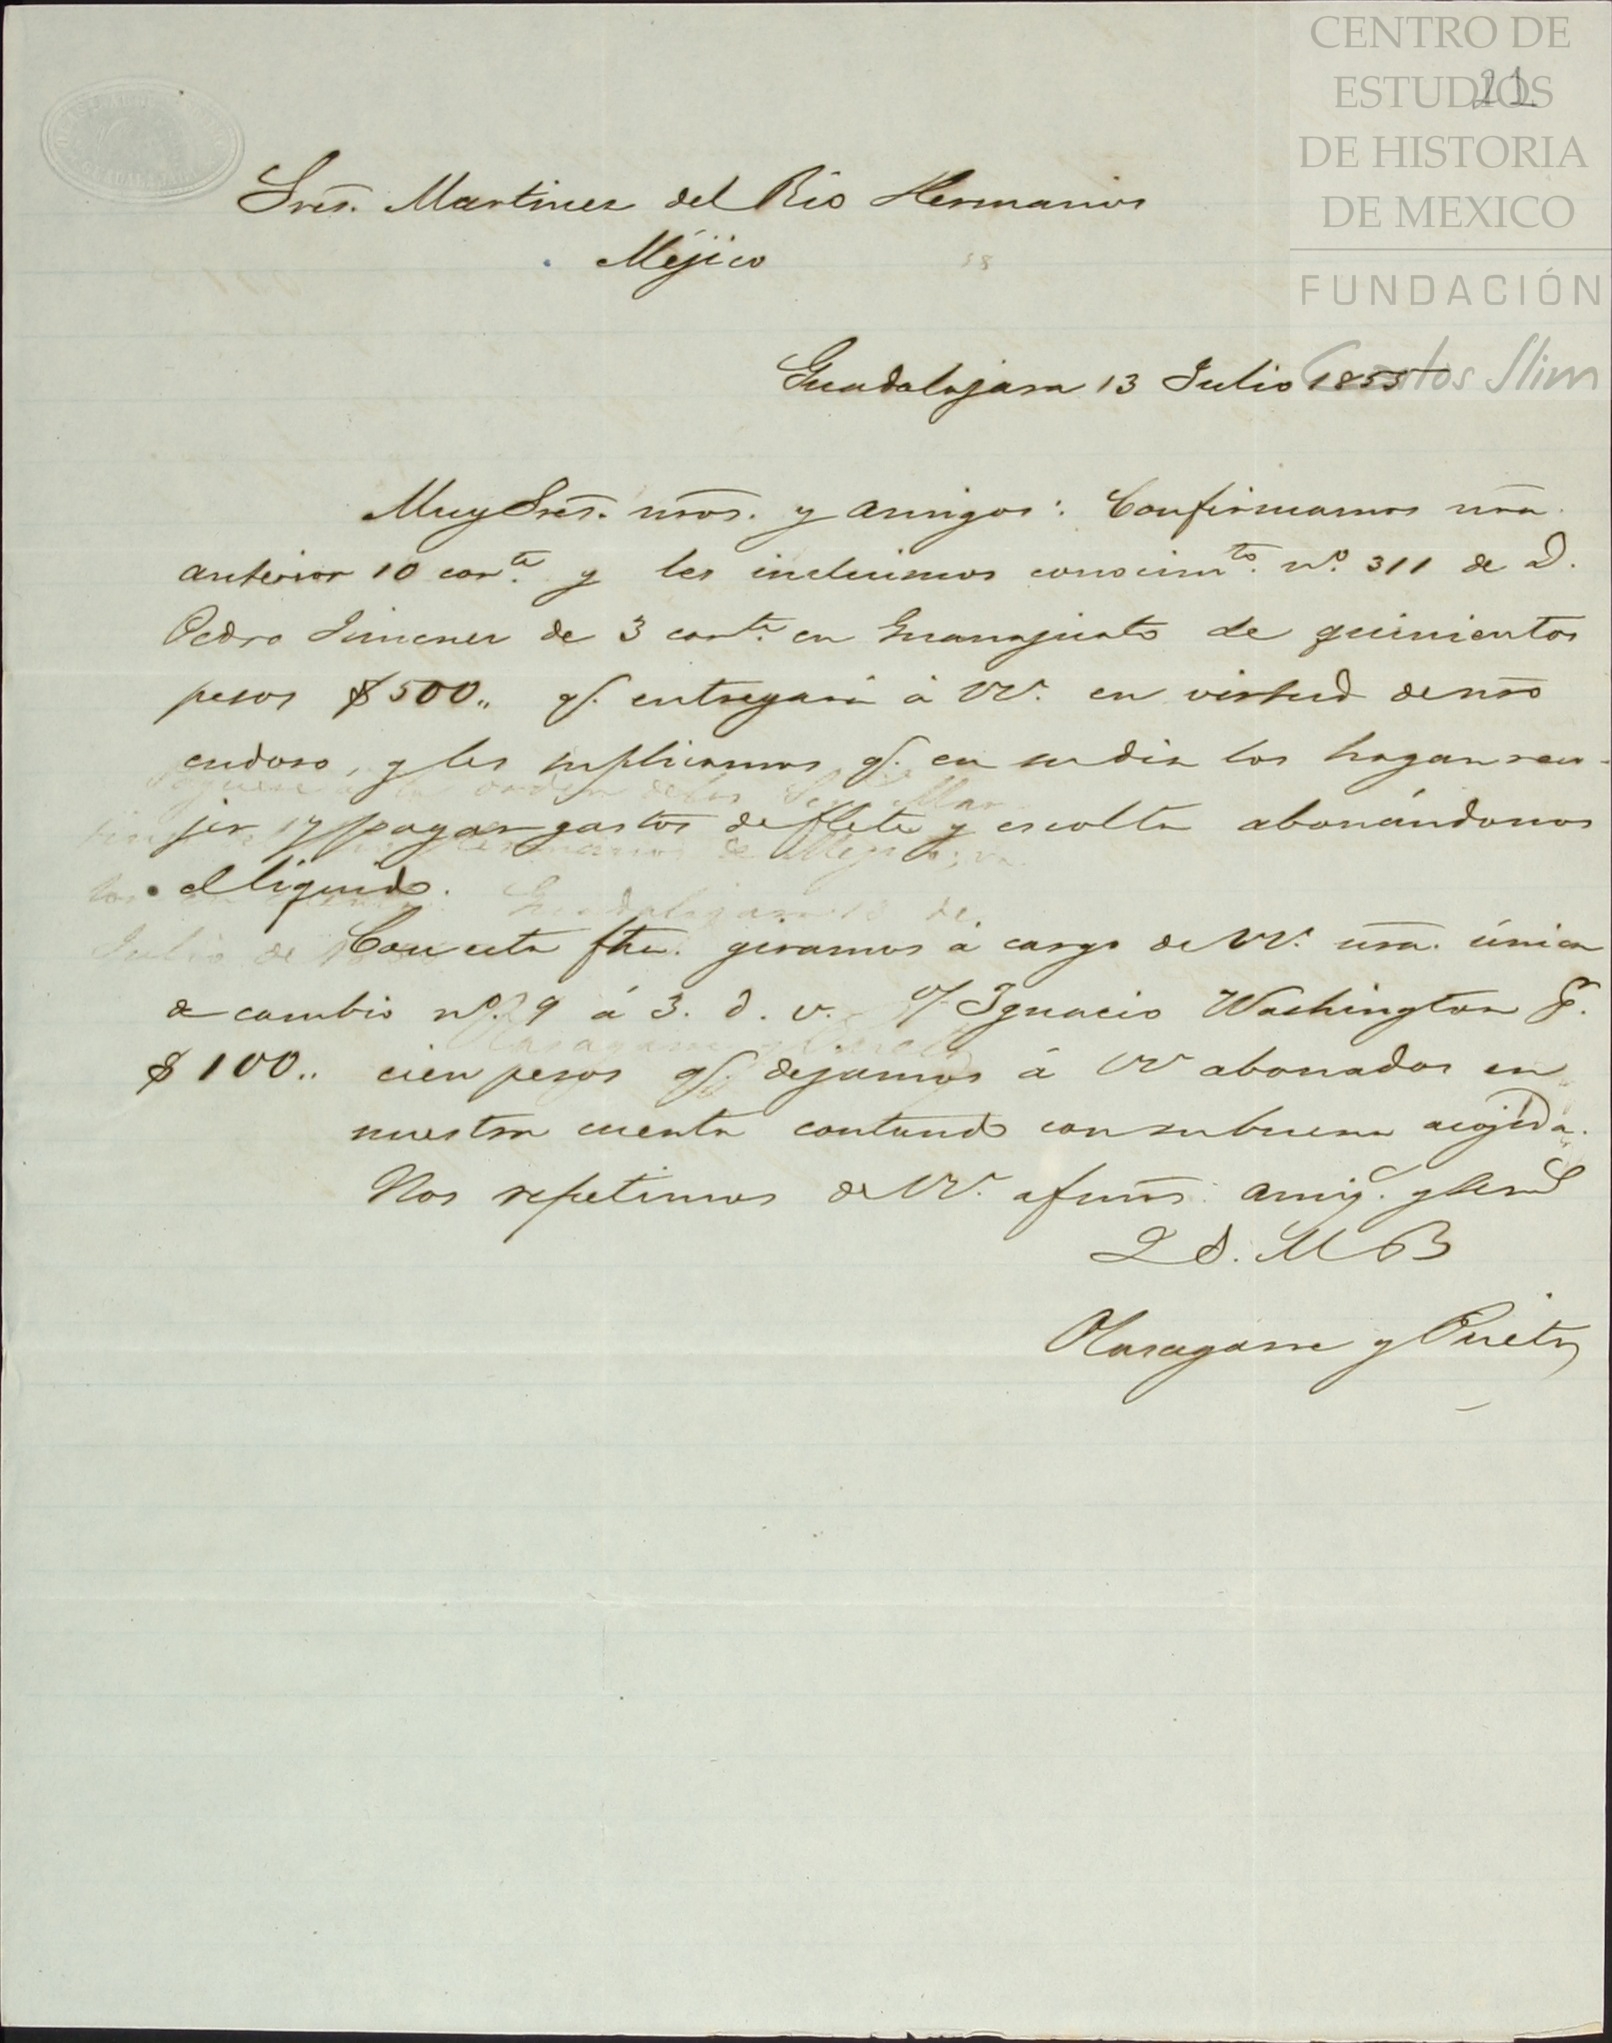 CENTRO DE
ESTUDIOS
DE HISTORIA
DE MEXICO
FUNDACIÓN
Carlos Slim
21
Sres. Martinez del Rio Hermanos
Méjico
Guadalajara 13 Julio 1855
Muy Sres. nros. y amigos: Confirmamos nra.
anterior 10 corte. y les incluimos conocimto. No. 311 de D.
Pedro Jimenez de 3 corte. en Guanajuato de quinientos
pesos $500,, q. entregará á VV. en virtud de nro
endoso, y les suplicamos q. en su dia los hagan reco-
jer y pagar gastos de flete y escolta abonándonos
el liquido.
Con esta fha. giramos á cargo de VV. nra. única
de cambio No. 9 á 3. d. v. o/ Ignacio Washington P.
$100,, cien pesos q. dejamos á VV abonados en
nuestra cuenta contando con su buena acojida.
Nos repetimos de VV. afmos. amigs. y servs
Q S. M B
Olasagarre y Prieto